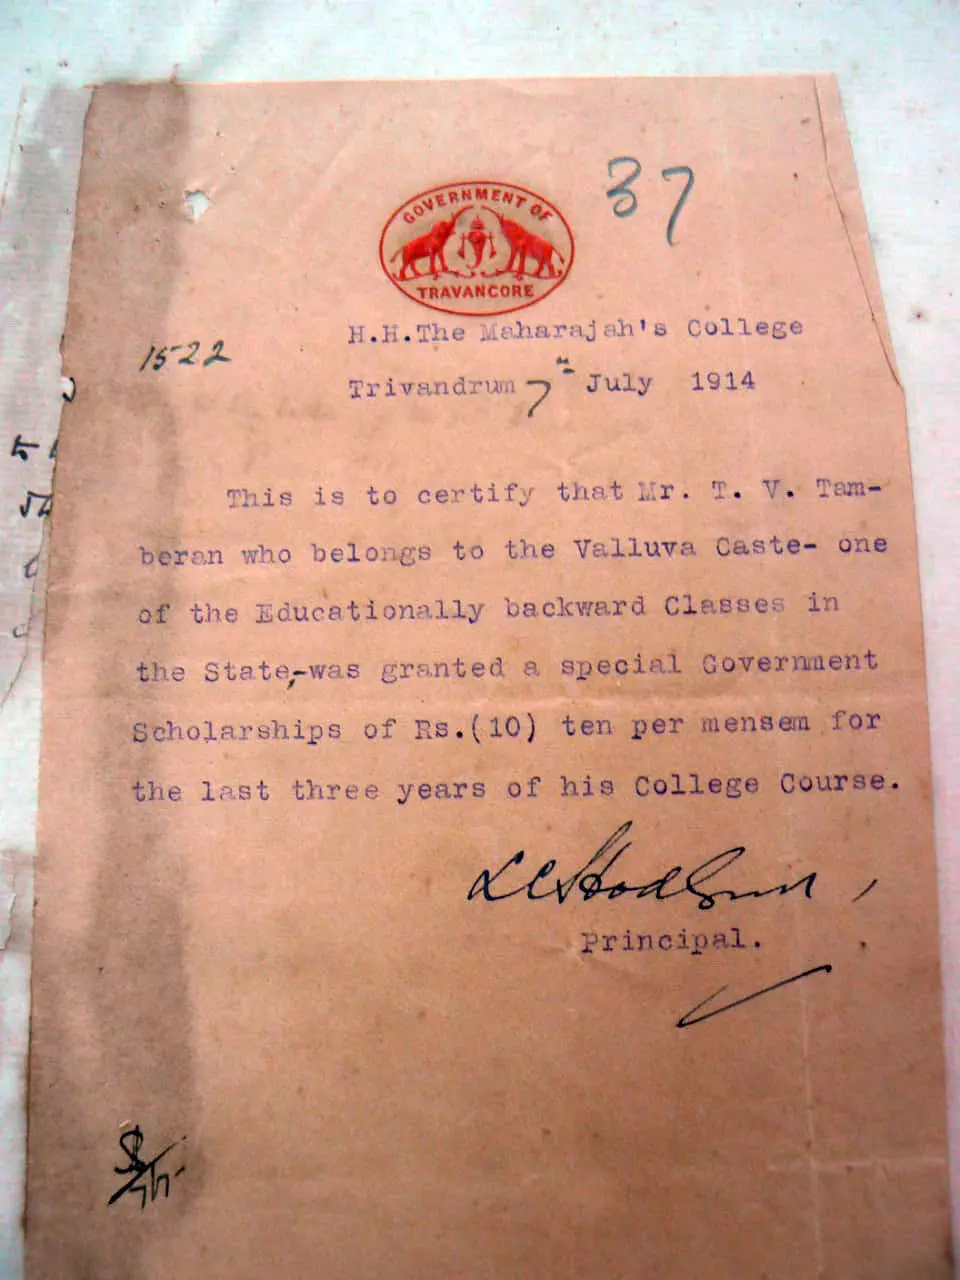 37
GOVERNMENT OF
TRAVANCORE
H.H.The Maharajah's College
1522
Trivandrum 7th July 1914
This is to certify that Mr. T. V. Tam-
beran who belongs to the Valluva Caste- one
of the Educationally backward Classes in
the State,-was granted a special Government
Scholarships of Rs.(10) ten per mensem for
the last three years of his College Course.
L C Hodgson
Principal.